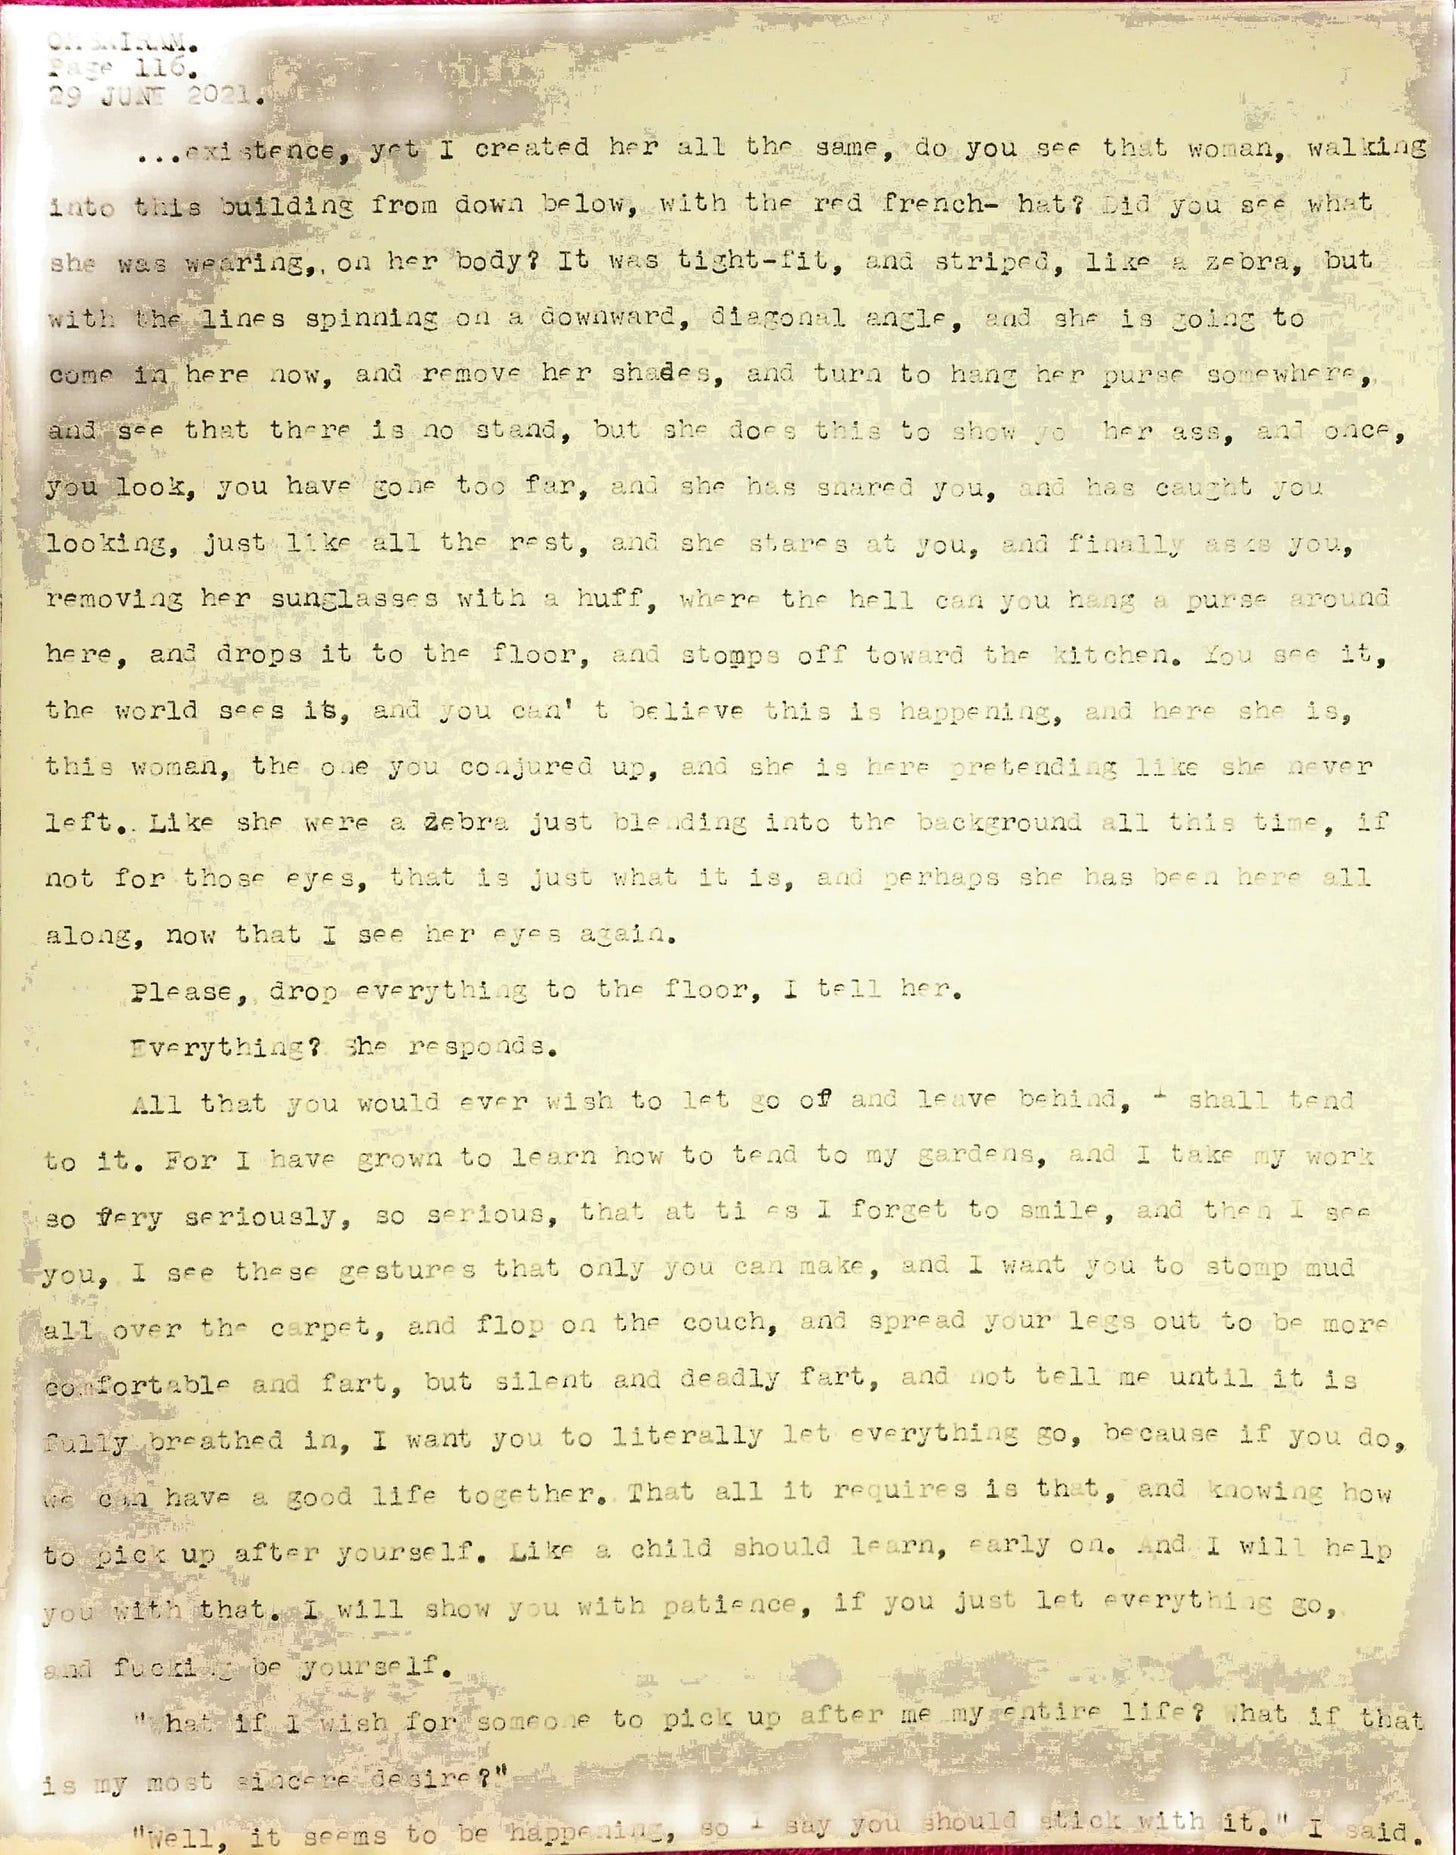 Page 116.
29 JUNE 2021.
...existence, yet I created her all the same, do you see that woman, walking
into this building from down below, with the red french- hat? Did you see what
she was wearing,. on her body? It was tight-fit, and striped, like a zebra, but
with the lines spinning on a downward, diagonal angle, and she is going to
come in here now, and remove her shades, and turn to hang her purse somewhere,
and see that there is no stand, but she does this to show yo her ass, and once,
you look, you have gone too far, and she has snared you, and has caught you
looking, just like all the rest, and she stares at you, and finally asks you,
removing her sunglasses with a huff, where the hell can you hang a purse around
here, and drops it to the floor, and stomps off toward the kitchen. You see it,
the world sees it, and you can' t believe this is happening, and here she is,
this woman, the one you conjured up, and she is here pretending like she never
left. Like she were a zebra just blending into the background all this time, if
not for those eyes, that is just what it is, and perhaps she has been here all
along, now that I see her eyes again.
Please, drop everything to the floor, I tell her.
Everything? She responds.
All that you would ever wish to let go of and leave behind, I shall tend
to it. For I have grown to learn how to tend to my gardens, and I take my work
so very seriously, so serious, that at ti es I forget to smile, and then I see
you, I see these gestures that only you can make, and I want you to stomp mud
all over the carpet, and flop on the couch, and spread your legs out to be more
comfortable and fart, but silent and deadly fart, and not tell me until it is
fully breathed in, I want you to literally let everything go, because if you do,
we can have a good life together. That all it requires is that, and knowing how
to pick up after yourself. Like a child should learn, early on. And I will help
you with that. I will show you with patience, if you just let everything go,
and fucking be yourself.
"What if I wish for someone to pick up after me my entire life? What if that
is my most sincere desire?"
"Well, it seems to be happening, so I say you should stick with it." I said.